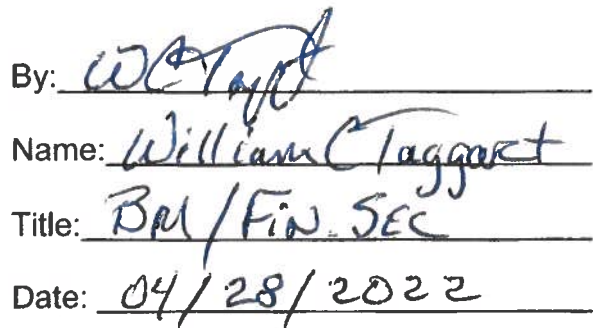 By: WCTaggart
Name: William C Taggart
Title: BM/Fin. SEC
Date: 04/28/2022